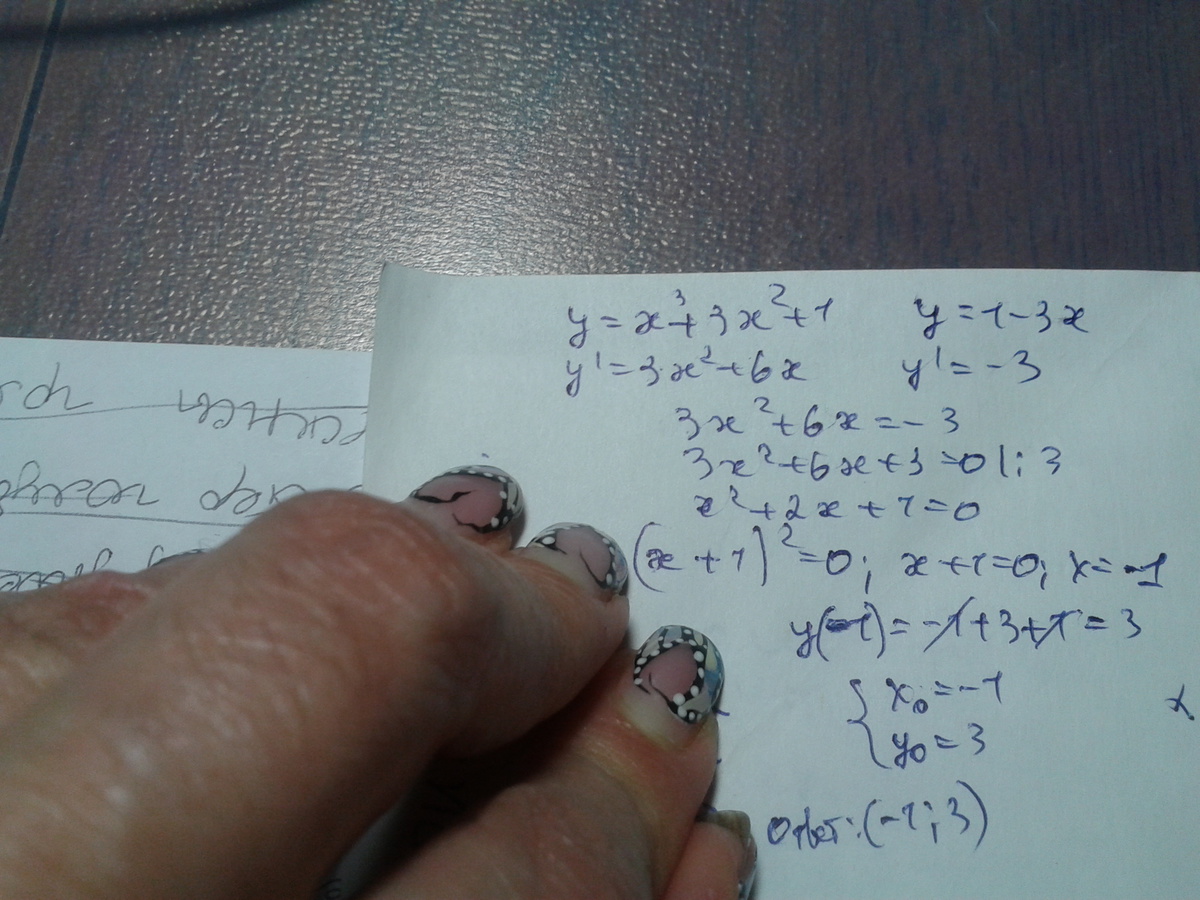 y = x³+3x²+1 y = 1-3x
y' = 3x²+6x y' = -3
3x²+6x = -3
3x²+6x+3=0 |:3
x²+2x+1=0
(x+1)²=0; x+1=0; x=-1
y(-1)=-1+3+1=3
{ x₀=-1
y₀=3
Ответ: (-1; 3)